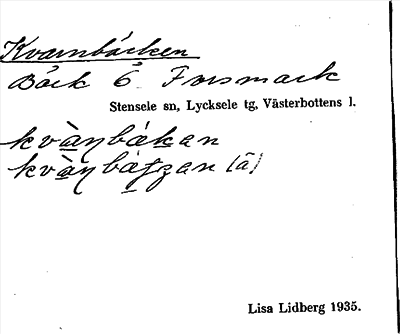 Kvarnbäcken
Bäck 6. Forsmark
Stensele sn, Lycksele tg, Västerbottens l.
kvàṉbákan
Lisa Lidberg 1935.